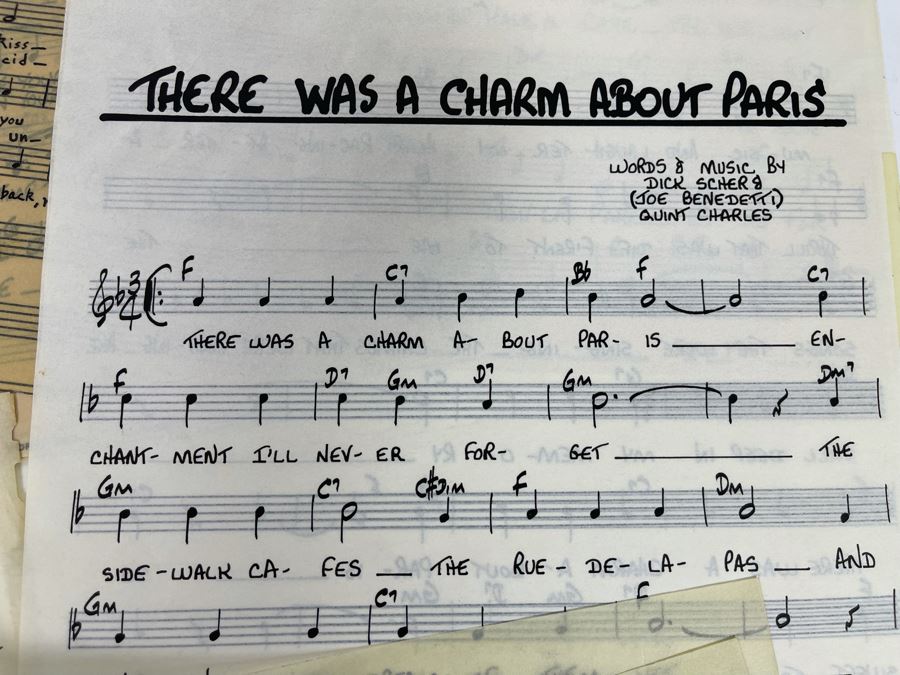 Kiss_
cid_
you
un_
back,
THERE WAS A CHARM ABOUT PARIS
WORDS & MUSIC BY
DICK SCHER &
(JOE BENEDETTI)
QUINT CHARLES
F C7 Bb F C7
3
4
THERE WAS A CHARM A- BOUT PAR- IS EN-
F D7 Gm D7 Gm Dm7
CHANT- MENT I'LL NEV- ER FOR- GET THE
Gm C7 C#DIM F Dm
SIDE-WALK CA- FES THE RUE DE- LA- PAS AND
Gm C7 F